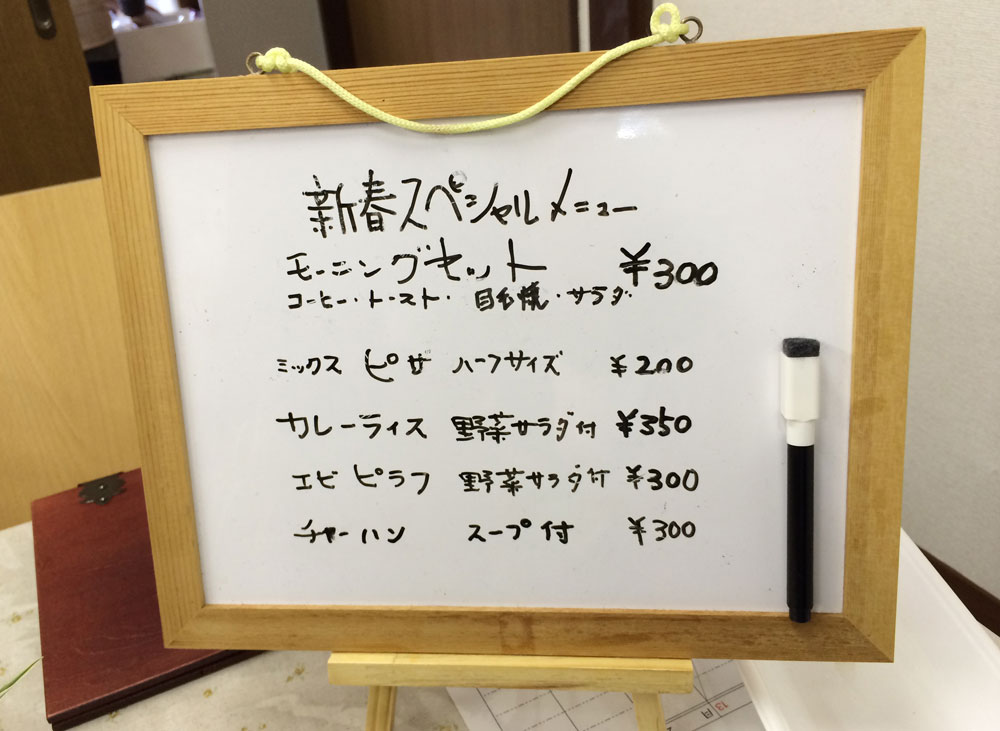 新春スペシャルメニュー
モーニングセット ¥300
コーヒー・トースト・目玉焼・サラダ
ミックス ピザ ハーフサイズ ¥200
カレーライス 野菜サラダ付 ¥350
エビ ピラフ 野菜サラダ付 ¥300
チャーハン スープ付 ¥300
13
月